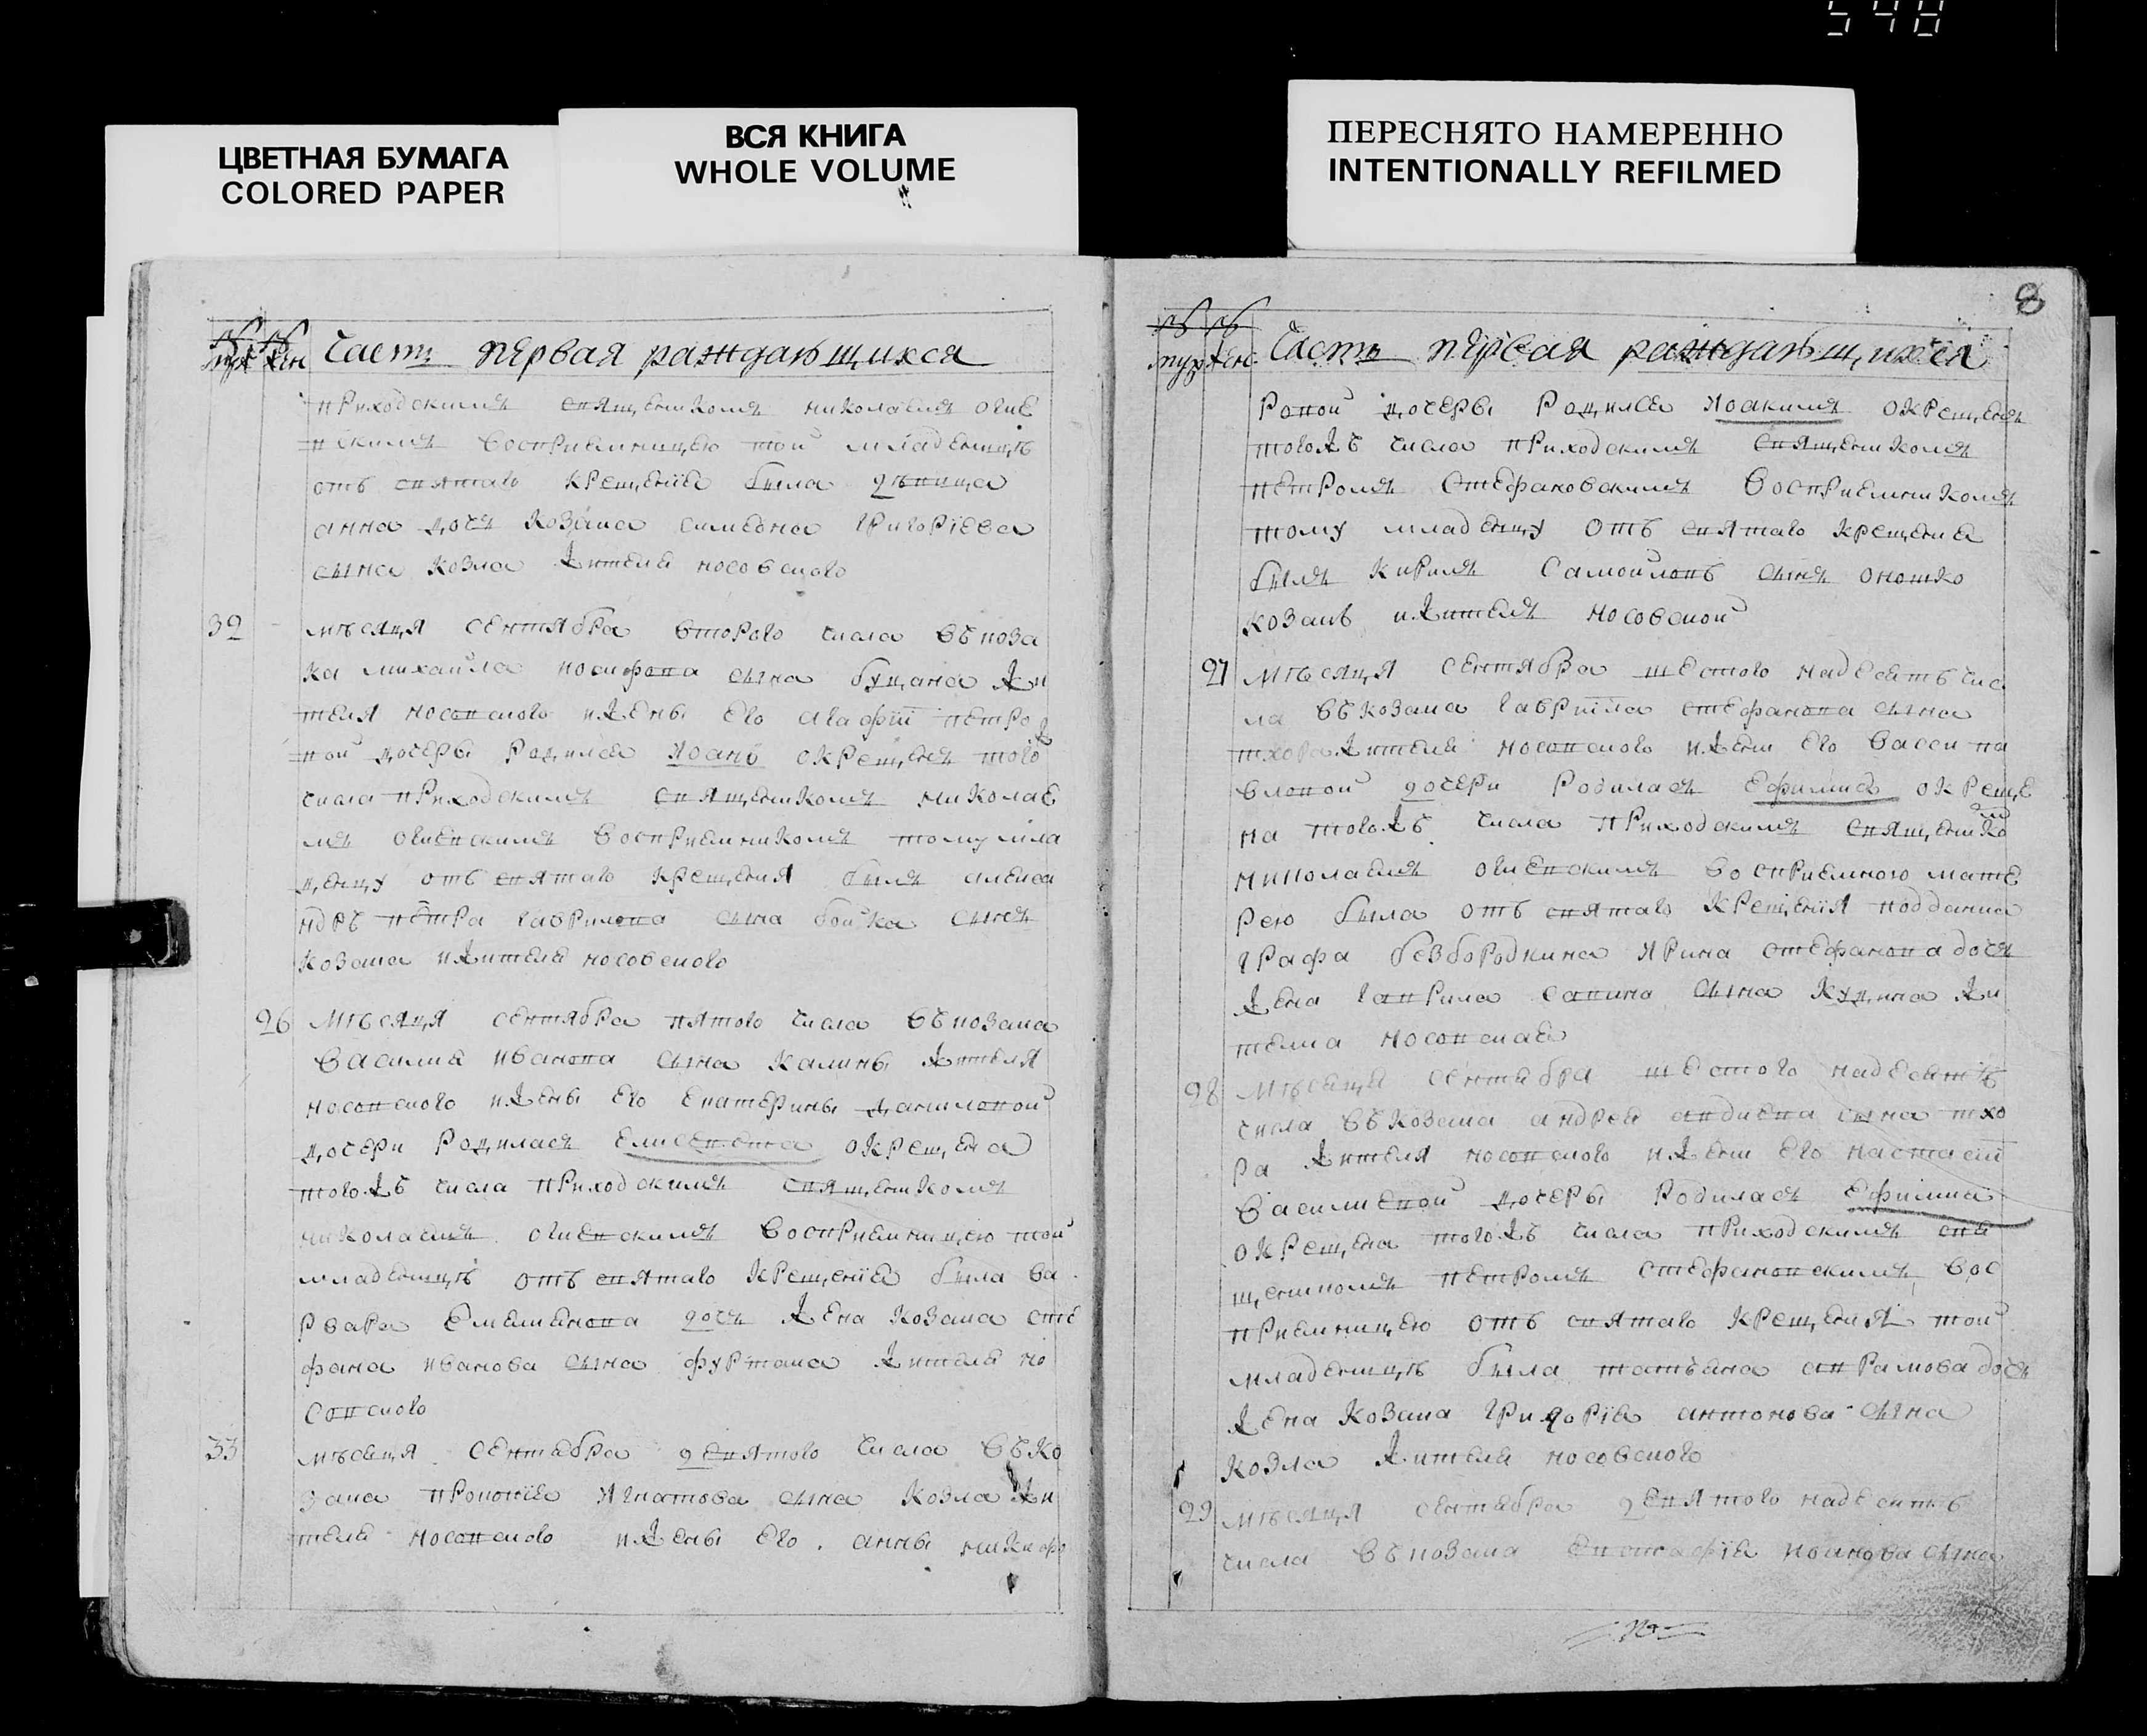 548
ЦВЕТНАЯ БУМАГА
COLORED PAPER
ВСЯ КНИГА
WHOLE VOLUME
ПЕРЕСНЯТО НАМЕРЕННО
INTENTIONALLY REFILMED
муж жен Часть первая раждающихся
приходскимъ священикомъ николаемъ огие
вскимъ восприемницею той младеницѣ
отъ святаго крещенїя была дѣвица
анна дочь козака симеона григорїева
сына козла жителя носовского
32 мѣсяця сентября второго числа въ коза
ка михаила иосифова сына буцана жи
теля носовского и жены его агафїи петро
вой дочеры родился иоанъ окрещенъ того ж
числа приходскимъ священикомъ николае
мъ огиевскимъ восприемникомъ тому мла
денцу отъ святаго крещения былъ алекса
ндръ петра гаврилова сына бойка сынъ
козака и жителя носовского
26 Мѣсяця сентября пятого числа въ козака
василия иванова сына калины жителя
носовского и жены его екатерины даниловой
дочери родилась елисевета окрещена
того жъ числа приходскимъ священикомъ
николаемъ огиевскимъ восприемницею той
младеницѣ отъ святаго крещенїя была ва
рвара емелиянова дочь жена козака сте
фана иванова сына фуртака жителя но
совского
33 мѣсяця сентября девятого числа въ ко
зака прокопїя игнатова сына козла жи
теля носовского и жены его анны никифо
8
муж жен Часть первая раждающихся
ровой дочеры родился иоакимъ окрещенъ
того жъ числа приходскимъ священикомъ
петромъ стефановскимъ восприемникомъ
тому младенцу отъ святаго крещения
былъ кирилъ самойловъ сынъ оношко
козакъ и житель носовской
27 мѣсяця сентября шестого надесять чис
ла въ козака гаврїила стефанова сына
тхора жителя носовского и жены его васси па
вловой дочери родилась ефимия окреще
на того жъ числа приходскимъ священико
мъ
николаемъ огиевскимъ восприемною мате
рею была отъ святаго крещенїя подданка
графа безбородкина ирина стефанова дочь
жена гаврила савина сына куцина жи
телка носовская
28 мѣсяця сентября шестого надесять
числа въ козака андрея авдиева сына тхо
ра жителя носовского и жены его настасїи
василиевой дочеры родилась ефимия
окрещена того жъ числа приходскимъ свя
щеникомъ петромъ стефановскимъ вос
приемницею отъ святаго крещения той
младеницѣ была татьяна аврамова дочь
жена козака григорїя антонова сына
козла жителя носовского
29 мѣсяця сентября девятого надесять
числа въ козака евстафїя иванова сына